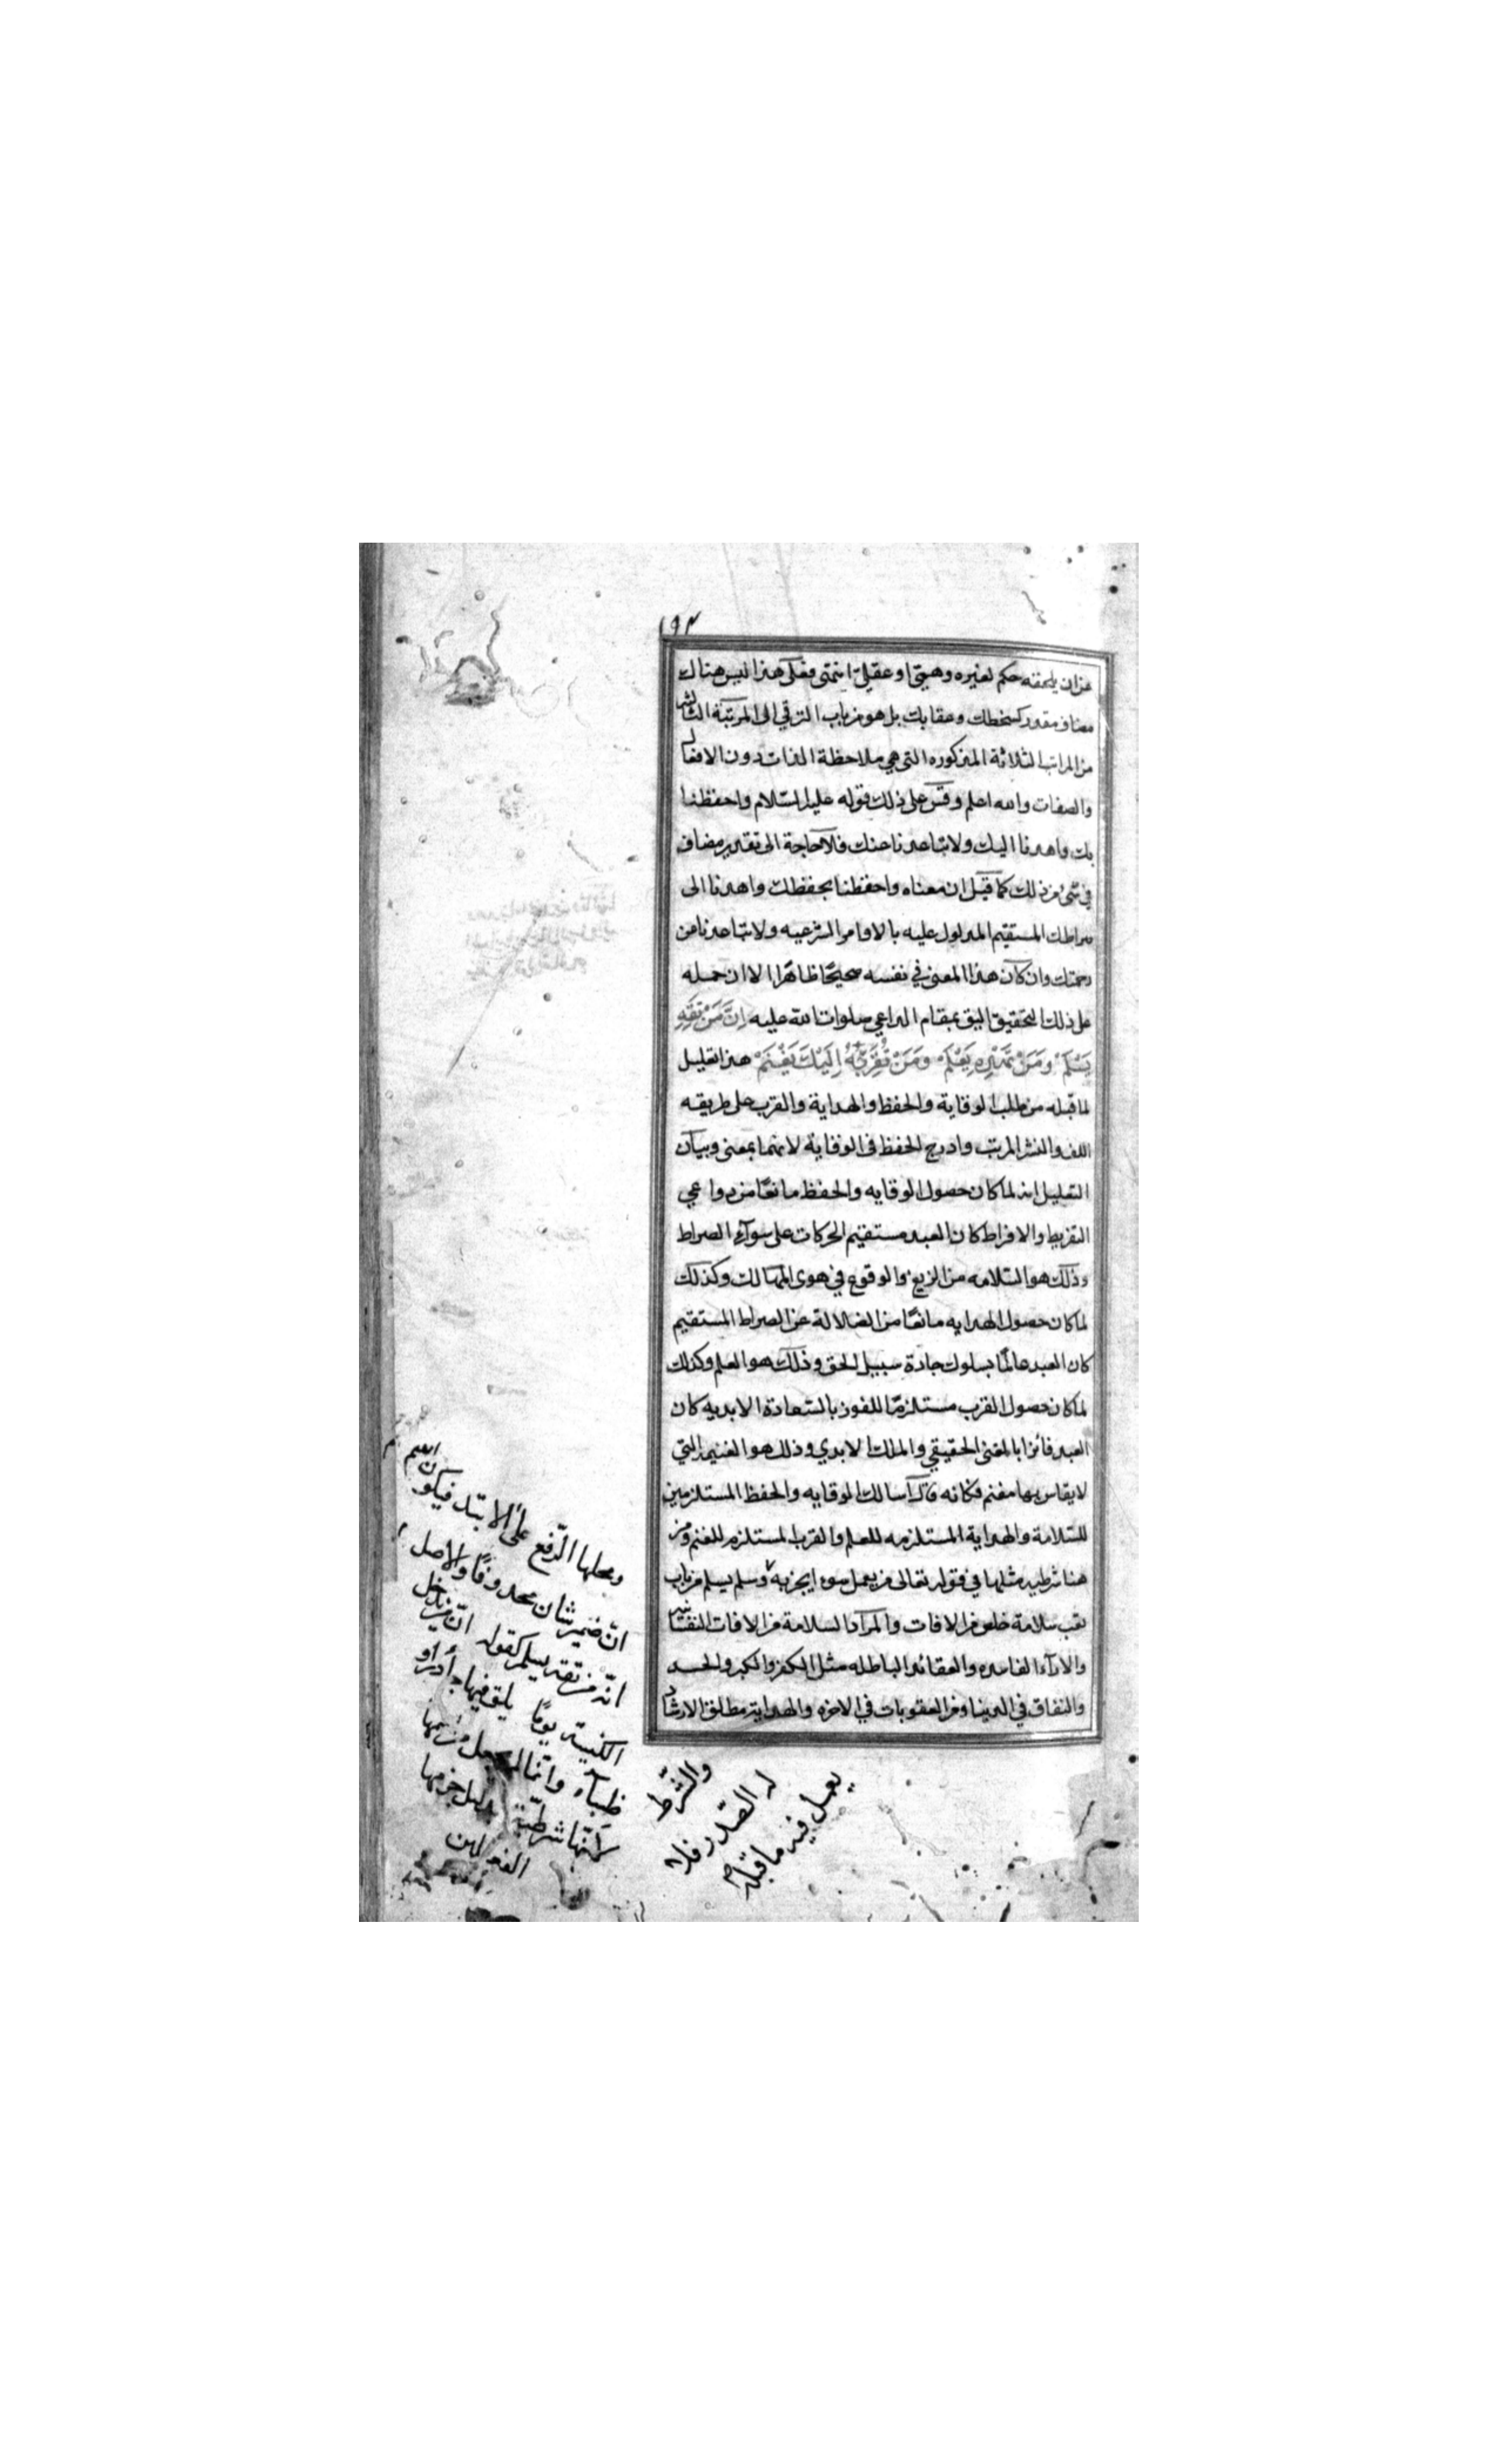 ١٩٣
عن ان يلحقه حكم لغيره وهميّ او عقليّ انتهى فعلى هذا ليس هناك
مضاف مقدر كسخطك وعقابك بل هو من باب الترقي الى المرتبة الثالثة
من المراتب الثلاثة المذكوره التى هي ملاحظة الذات دون الافعال
والصفات والله اعلم وقس على ذلك قوله عليه السّلام واحفظنا
بك واهدنا اليك ولا تباعدنا عنك فلا حاجة الى تقدير مضاف
في شئ من ذلك كما قيل ان معناه واحفظنا بحفظك واهدنا الى
صراطك المستقيم المدلول عليه بالاوامر الشرعيه ولا تباعدنا من
رحمتك وان كان هذا المعنى في نفسه صحيحًا ظاهرًا الا ان حمله
على ذلك التحقيق اليق بمقام الداعي صلوات الله عليه اِنَّ مَنْ تَقِهِ
يَسْلَمْ وَمَنْ تَهْدِهِ يَعْلَمْ وَمَنْ تُقَرِّبْهُ اِلَيْكَ يَغْنَمْ هذا تعليل
لما قبله من طلب الوقاية والحفظ والهداية والقرب على طريقه
اللف والنشر المرتب وادرج الحفظ فى الوقاية لانهما بمعنى وبيان
التعليل انه لما كان حصول الوقايه والحفظ مانعًا من دواعي
التفريط والافراط كان العبد مستقيم الحركات على سواء الصراط
وذلك هو السّلامه من الزيغ والوقوع في هوى المهالك وكذلك
لما كان حصول الهدايه مانعًا من الضلالة عن الصراط المستقيم
كان العبد عالمًا بسلوك جادة سبيل الحق وذلك هو العلم وكذلك
لما كان حصول القرب مستلزمًا للفوز بالسّعادة الابديه كان
العبد فائزا بالغنى الحقيقي والملك الابدي وذلك هو الغنيمة التي
لا يقاس بها مغنم فكانه قال اسالك الوقايه والحفظ المستلزمين
للسّلامة والهداية المستلزمه للعلم والقرب المستلزم للغنم ومن
هنا شرطيه مثلها في قوله تعالى من يعمل سوءا يجز به وسلم يسلم من باب
تعب سلامة خلص من الافات والمراد السلامة من الافات النفسانيه
والاراء الفاسده والعقائد الباطله مثل الكفر والكبر والحسد
والنفاق في الدينا ومن العقوبات في الاخره والهداية مطلق الارشاد
ومحلها الرّفع على الابتدا فيكون اسم
انّ ضمير شان محذوفًا والاصل
انّه من تقه يسلم كقوله انّ من يدخل
الكنيسة يومًا يلق فيها جأذرًا و
ظباءً وانّما لم يجعل من اسمها
لانّها شرطيّة بدليل جزمها
الفعلين
والشّرط
له الصّدر فلا
يعمل فيه ما قبله